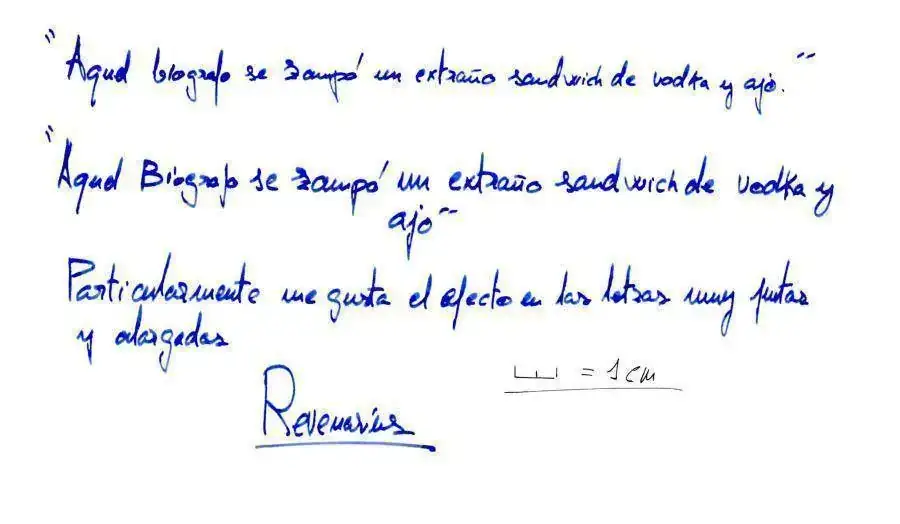 "Aquel biografo se zampó un extraño sandwich de vodka y ajo."
"Aquel Biografo se zampó un extraño sandwich de vodka y
ajo"
Particularmente me gusta el efecto en las letras muy juntas
y alargadas
= 1 cm
Revenarius